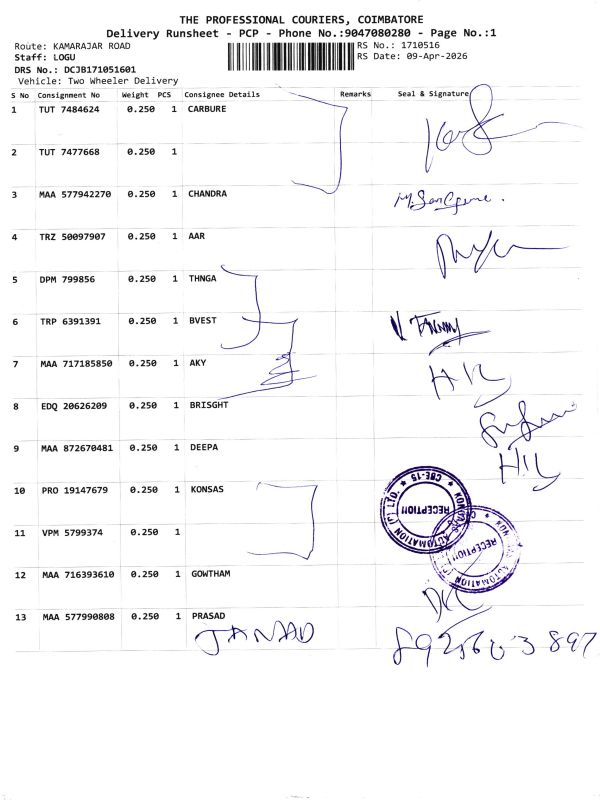 THE PROFESSIONAL COURIERS, COIMBATORE
Delivery Runsheet - PCP - Phone No.:9047080280 - Page No.:1
Route: KAMARAJAR ROAD RS No.: 1710516
Staff: LOGU RS Date: 09-Apr-2026
DRS No.: DCJB171051601
Vehicle: Two Wheeler Delivery
S No Consignment No Weight PCS Consignee Details Remarks Seal & Signature
1 TUT 7484624 0.250 1 CARBURE
2 TUT 7477668 0.250 1
3 MAA 577942270 0.250 1 CHANDRA
4 TRZ 50097907 0.250 1 AAR
5 DPM 799856 0.250 1 THNGA
6 TRP 6391391 0.250 1 BVEST
7 MAA 717185850 0.250 1 AKY
8 EDQ 20626209 0.250 1 BRISGHT
9 MAA 872670481 0.250 1 DEEPA
10 PRO 19147679 0.250 1 KONSAS
11 VPM 5799374 0.250 1
RECEPTION
CBE-15
RECEPTION
12 MAA 716393610 0.250 1 GOWTHAM
13 MAA 577990808 0.250 1 PRASAD